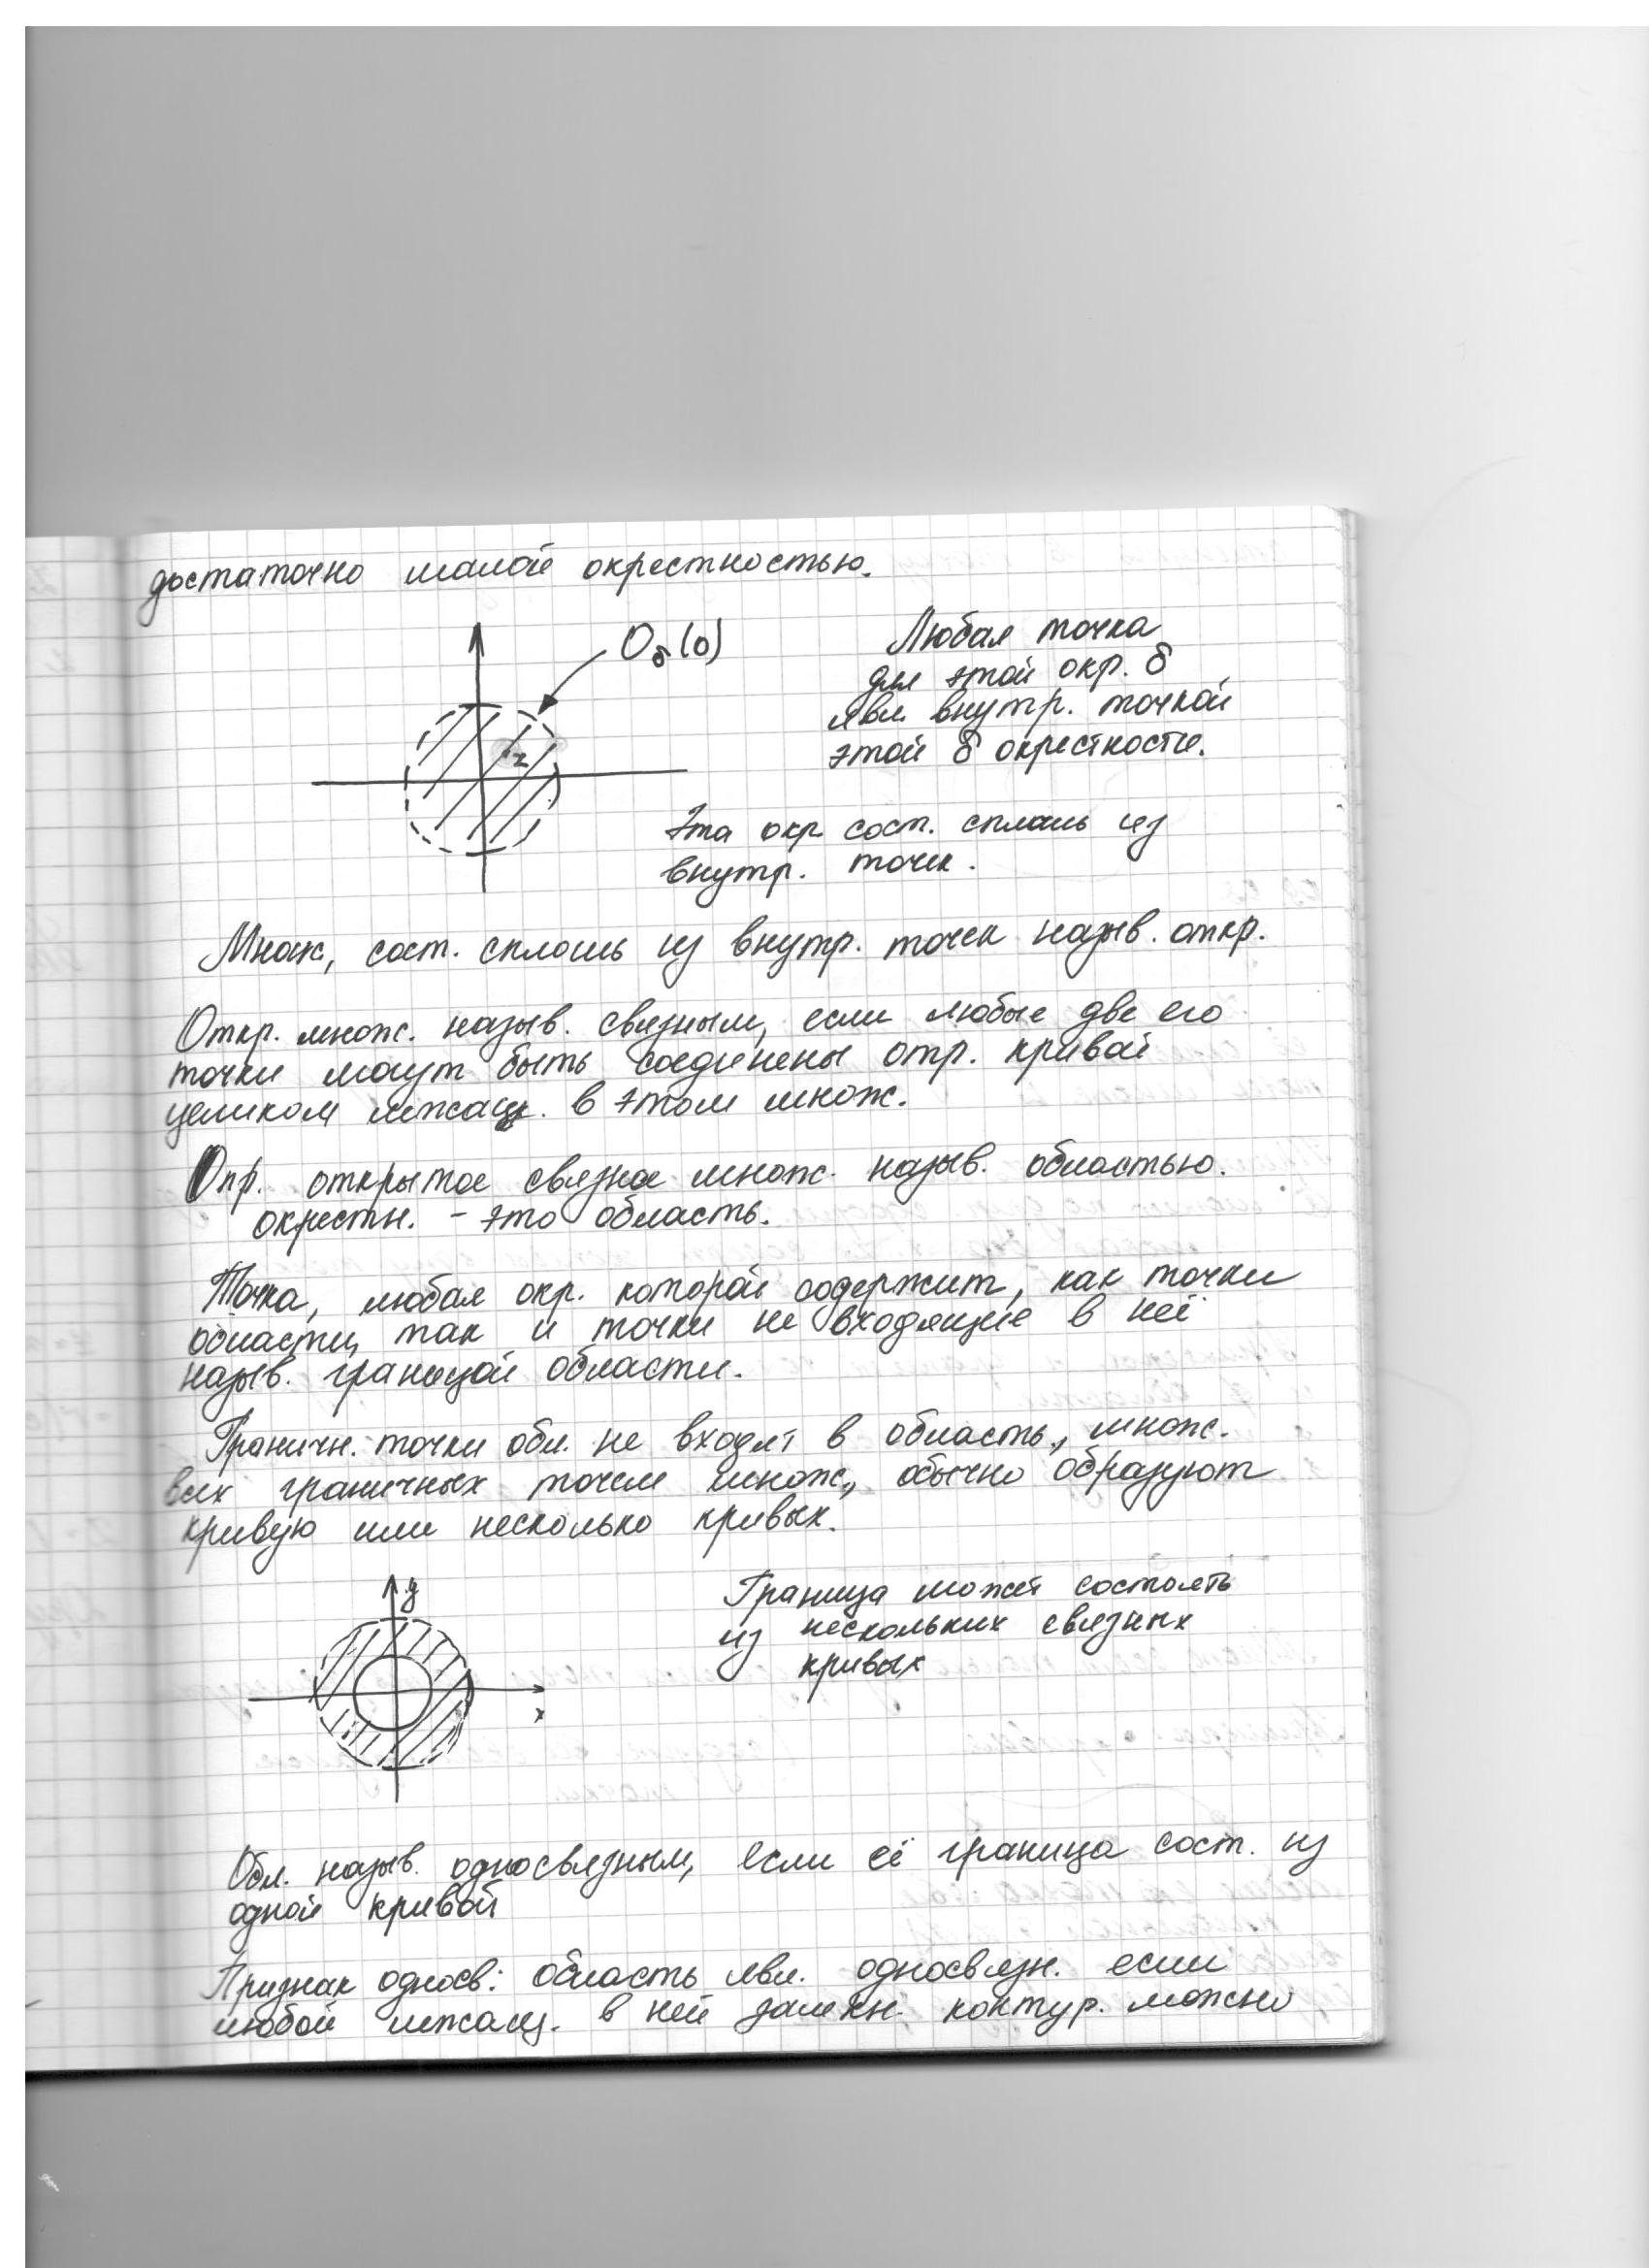 достаточно малой окрестностью.
O_δ(0)
z
Любая точка
для этой окр. δ
явл. внутр. точкой
этой δ окрестности.
Эта окр сост. сплошь из
внутр. точек.
Множ, сост. сплошь из внутр. точек назыв. откр.
Откр. множ. назыв. связным, если любые две его
точки могут быть соединены отр. кривой
целиком лежащ. в этом множ.
Опр. открытое связное множ. назыв. областью.
окрестн. - это область.
Точка, любая окр. которой содержит, как точки
области, так и точки не входящие в неё
назыв. границей области.
Граничн. точки обл. не входят в область, множ.
всех граничных точек множ., обычно образуют
кривую или несколько кривых.
y
x
Граница может состоять
из нескольких связных
кривых
Обл. назыв. односвязным, если её граница сост. из
одной кривой
Признак односв: область явл. односвязн. если
любой лежащ. в ней замкн. контур. можно